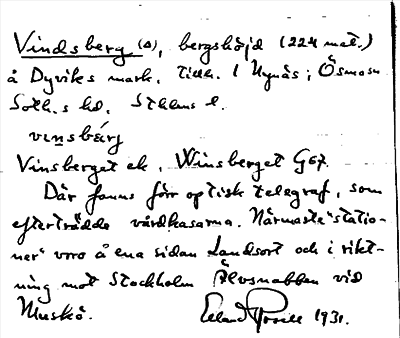 Vindsberg (Δ), bergshöjd (224 met.)
å Dyviks mark, tillh. l Nynäs; Ösmo sn
Soth.s hd. Sthlms l.
vinsbärj
Vinsberget ek, Winsberget G67.
Där fanns förr optisk telegraf, som
efterträdde vårdkasarna. Närmaste "statio-
ner" voro å ena sidan Landsort och i rikt-
ning mot Stockholm Älvsnabben vid
Muskö.
Erland 1931.